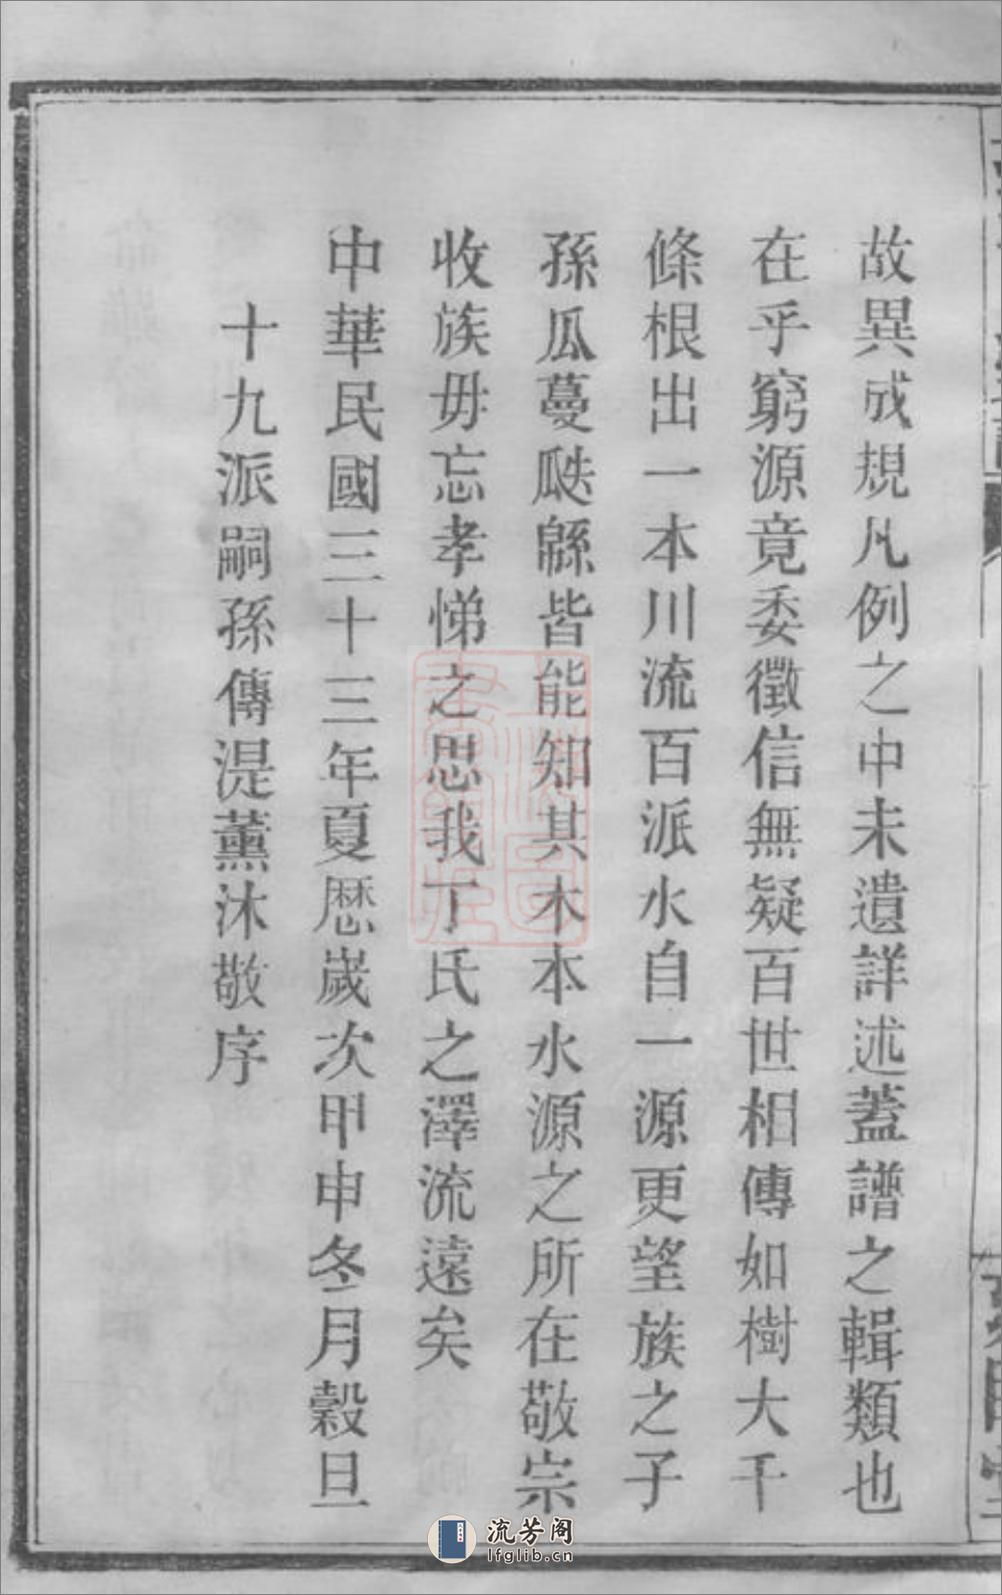 故異成規凡例之中未遺詳述蓋譜之輯類也
在乎窮源竟委徵信無疑百世相傳如樹大千
條根出一本川流百派水自一源更望族之子
孫瓜蔓瓞緜皆能知其木本水源之所在敬宗
收族毋忘孝悌之思我丁氏之澤流遠矣
中華民國三十三年夏歷歲次甲申冬月穀旦
十九派嗣孫傳湜薰沐敬序
流芳阁
lfglib.cn